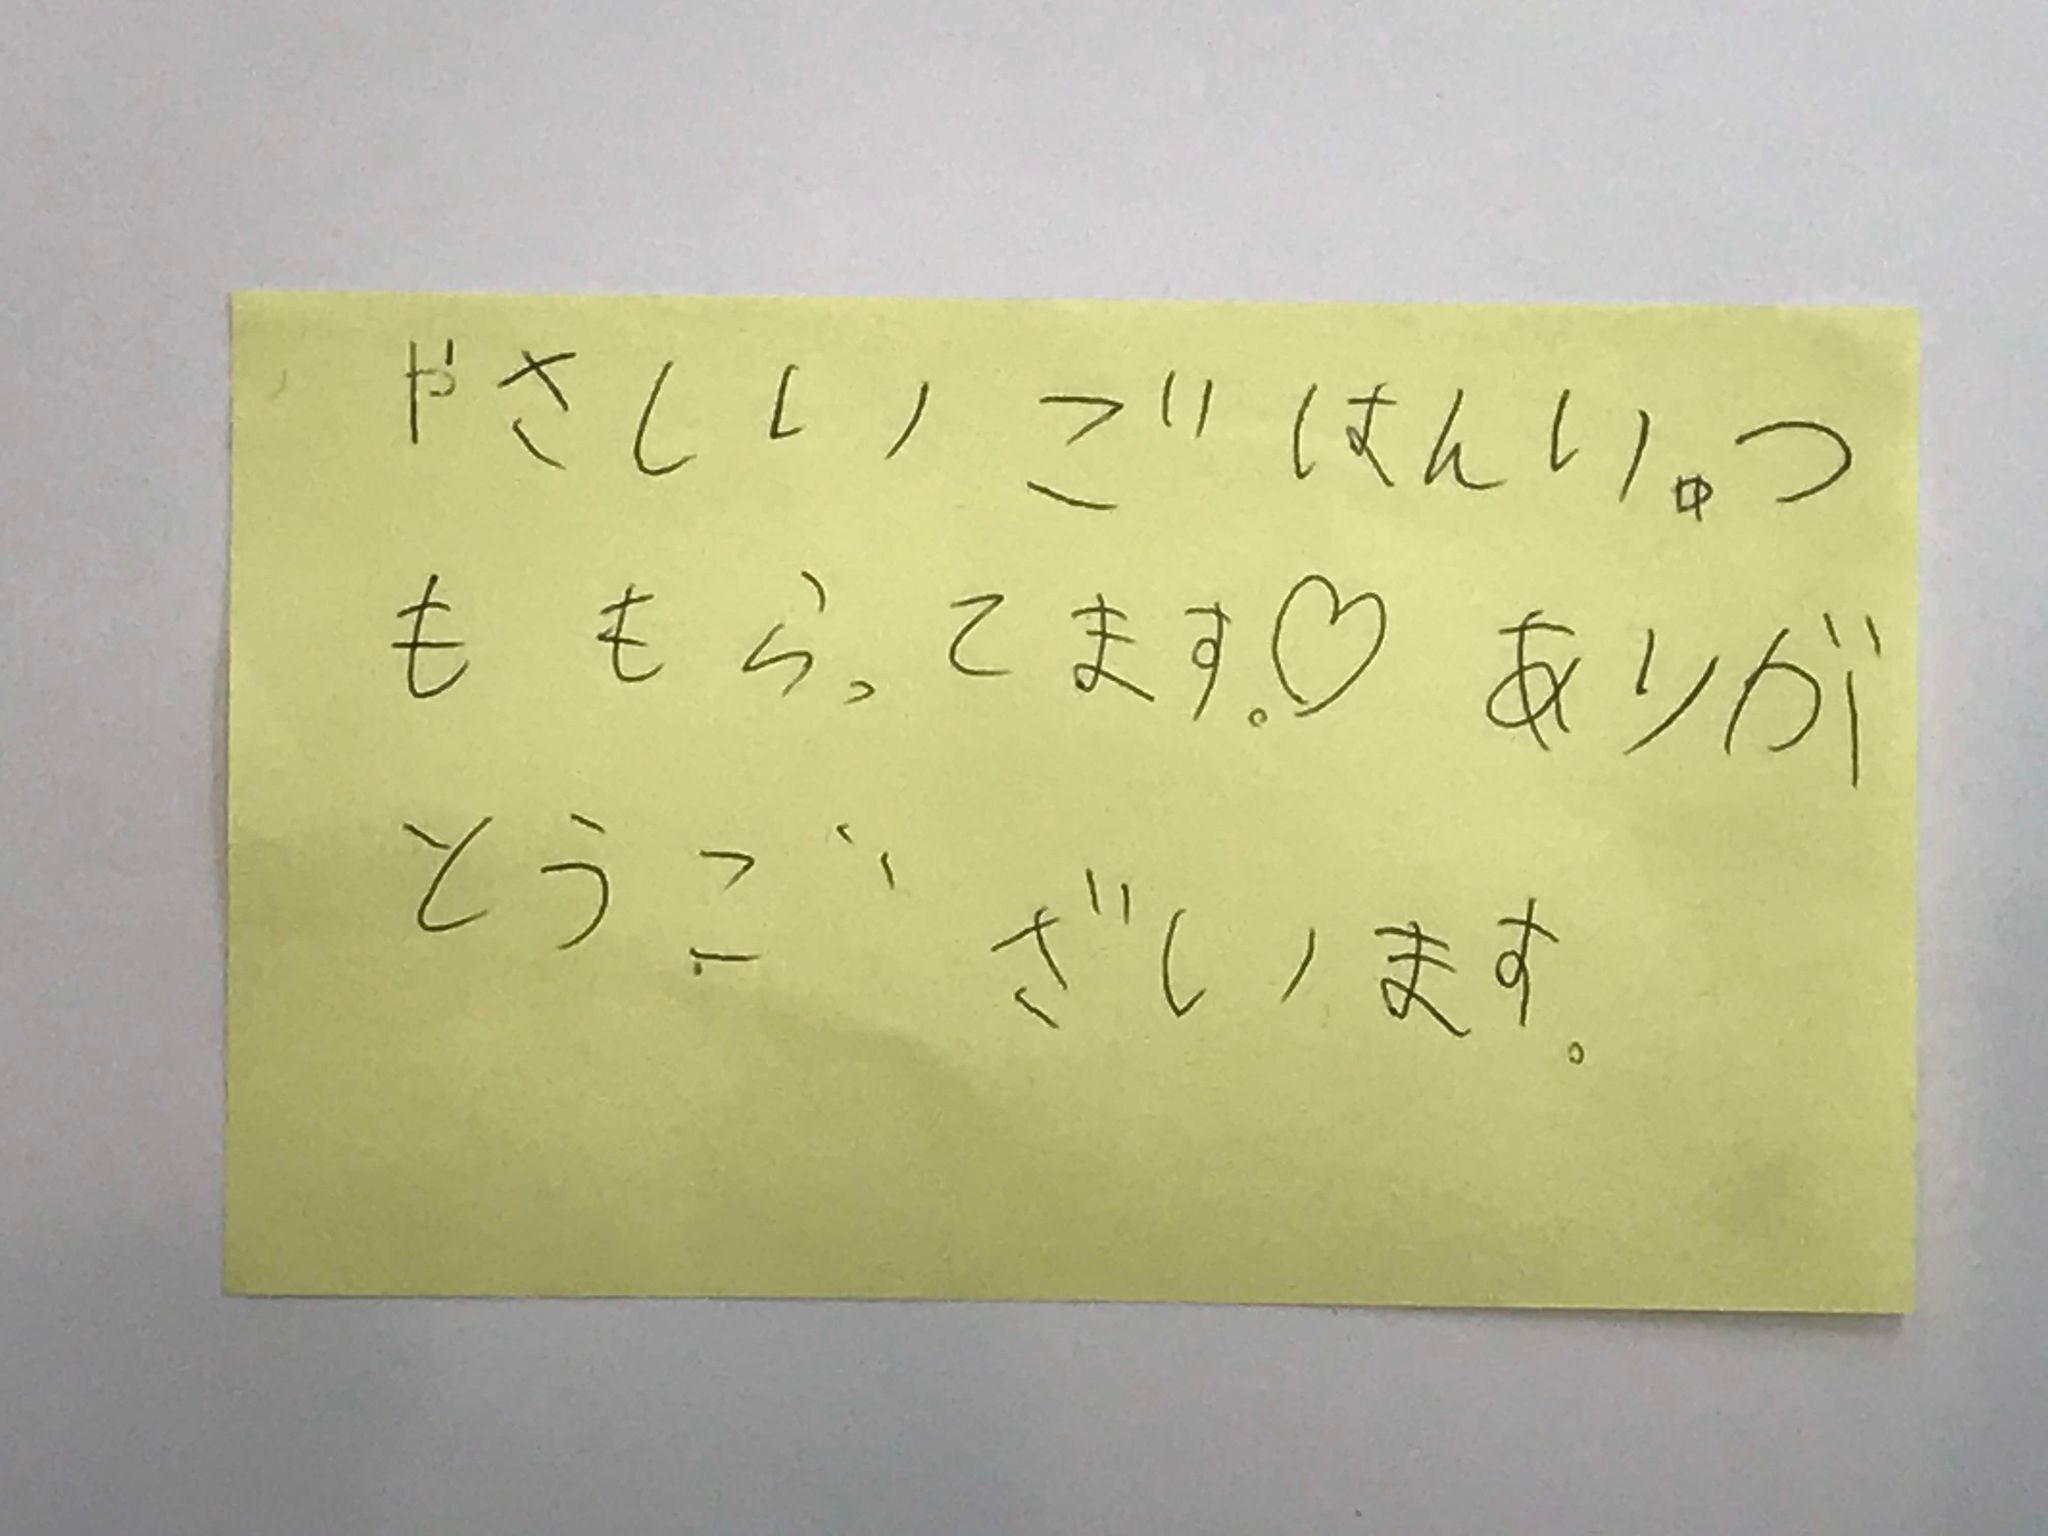 やさしいごはんい。つ
ももらってます。♡ありが
とうございます。